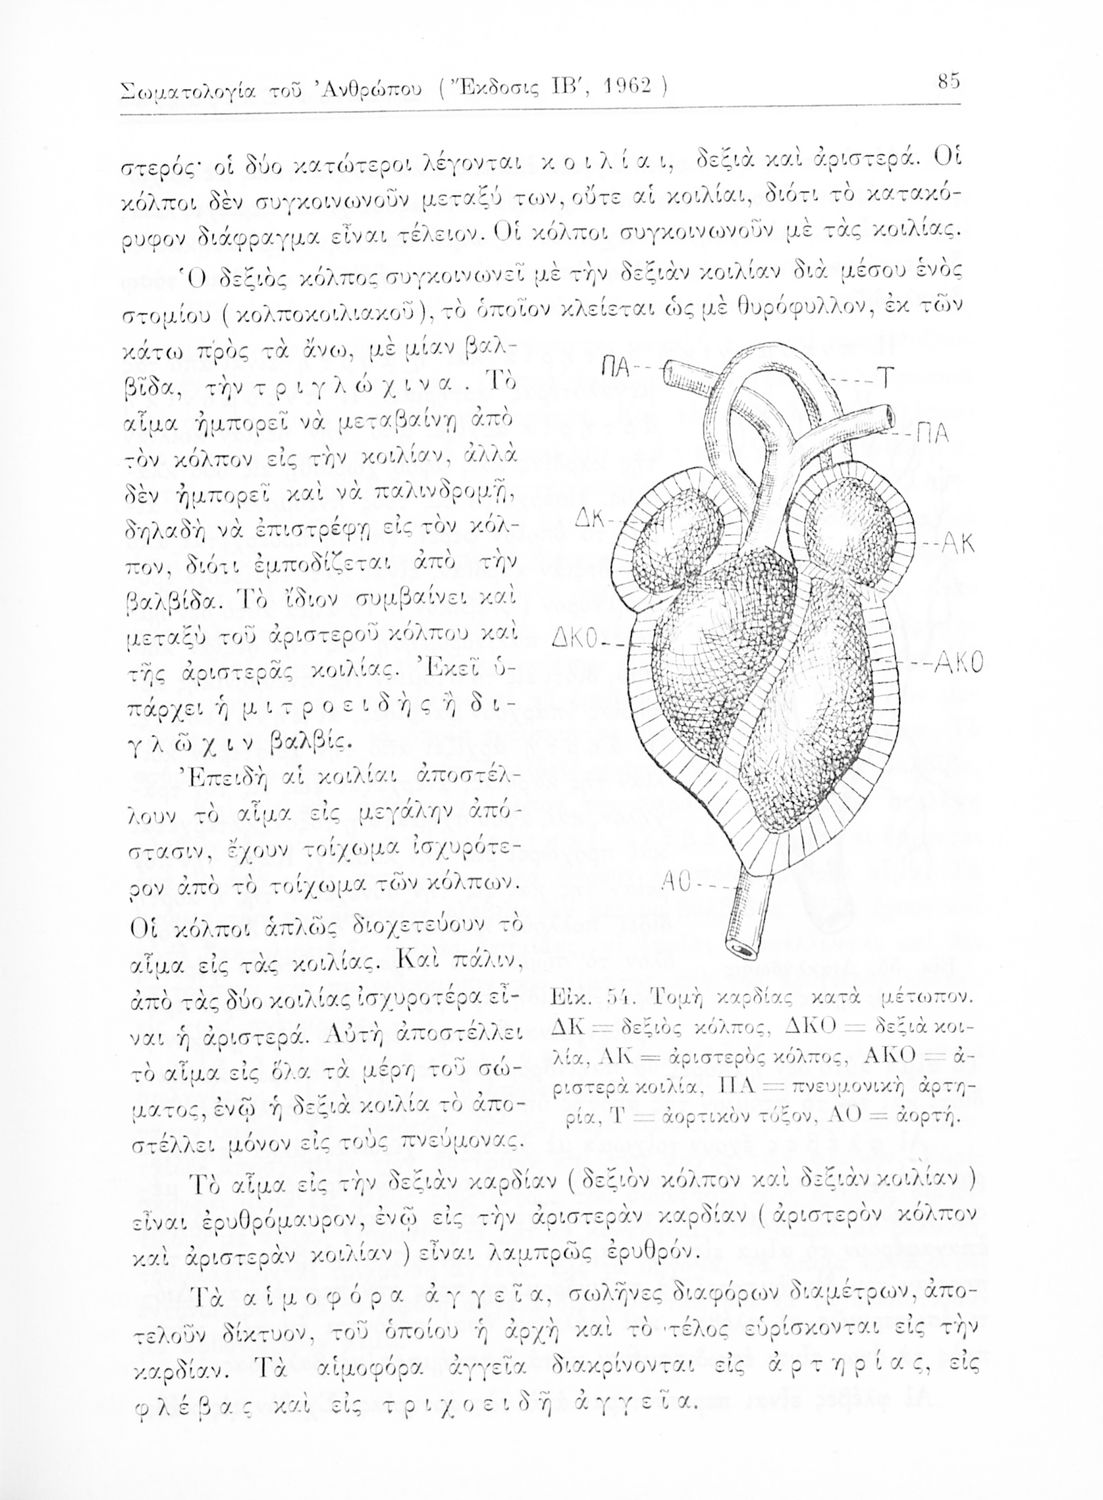 Σωματολογία τοῦ Ἀνθρώπου ( Ἔκδοσις ΙΒ′, 1962 ) 85
στερός· οἱ δύο κατώτεροι λέγονται κοιλίαι, δεξιὰ καὶ ἀριστερά. Οἱ
κόλποι δὲν συγκοινωνοῦν μεταξύ των, οὔτε αἱ κοιλίαι, διότι τὸ κατακό-
ρυφον διάφραγμα εἶναι τέλειον. Οἱ κόλποι συγκοινωνοῦν μὲ τὰς κοιλίας.
Ὁ δεξιὸς κόλπος συγκοινωνεῖ μὲ τὴν δεξιὰν κοιλίαν διὰ μέσου ἑνὸς
στομίου ( κολποκοιλιακοῦ ), τὸ ὁποῖον κλείεται ὡς μὲ θυρόφυλλον, ἐκ τῶν
κάτω πρὸς τὰ ἄνω, μὲ μίαν βαλ-
βῖδα, τὴν τριγλώχινα. Τὸ
αἷμα ἠμπορεῖ νὰ μεταβαίνῃ ἀπὸ
τὸν κόλπον εἰς τὴν κοιλίαν, ἀλλὰ
δὲν ἠμπορεῖ καὶ νὰ παλινδρομῇ,
δηλαδὴ νὰ ἐπιστρέφῃ εἰς τὸν κόλ-
πον, διότι ἐμποδίζεται ἀπὸ τὴν
βαλβίδα. Τὸ ἴδιον συμβαίνει καὶ
μεταξὺ τοῦ ἀριστεροῦ κόλπου καὶ
τῆς ἀριστερᾶς κοιλίας. Ἐκεῖ ὑ-
πάρχει ἡ μιτροειδὴς ἢ δι-
γλῶχιν βαλβίς.
Ἐπειδὴ αἱ κοιλίαι ἀποστέλ-
λουν τὸ αἷμα εἰς μεγάλην ἀπό-
στασιν, ἔχουν τοίχωμα ἰσχυρότε-
ρον ἀπὸ τὸ τοίχωμα τῶν κόλπων.
Οἱ κόλποι ἁπλῶς διοχετεύουν τὸ
αἷμα εἰς τὰς κοιλίας. Καὶ πάλιν,
ἀπὸ τὰς δύο κοιλίας ἰσχυροτέρα εἶ-
ναι ἡ ἀριστερά. Αὐτὴ ἀποστέλλει
τὸ αἷμα εἰς ὅλα τὰ μέρη τοῦ σώ-
ματος, ἐνῷ ἡ δεξιὰ κοιλία τὸ ἀπο-
στέλλει μόνον εἰς τοὺς πνεύμονας.
ΠΑ
Τ
ΠΑ
ΔΚ
ΑΚ
ΔΚΟ
ΑΚΟ
ΑΟ
Εἰκ. 54. Τομὴ καρδίας κατὰ μέτωπον.
ΔΚ = δεξιὸς κόλπος, ΔΚΟ = δεξιὰ κοι-
λία, ΑΚ = ἀριστερὸς κόλπος, ΑΚΟ = ἀ-
ριστερὰ κοιλία, ΠΑ = πνευμονικὴ ἀρτη-
ρία, Τ = ἀορτικὸν τόξον, ΑΟ = ἀορτή.
Τὸ αἷμα εἰς τὴν δεξιὰν καρδίαν ( δεξιὸν κόλπον καὶ δεξιὰν κοιλίαν )
εἶναι ἐρυθρόμαυρον, ἐνῷ εἰς τὴν ἀριστερὰν καρδίαν ( ἀριστερὸν κόλπον
καὶ ἀριστερὰν κοιλίαν ) εἶναι λαμπρῶς ἐρυθρόν.
Τὰ αἱμοφόρα ἀγγεῖα, σωλῆνες διαφόρων διαμέτρων, ἀπο-
τελοῦν δίκτυον, τοῦ ὁποίου ἡ ἀρχὴ καὶ τὸ τέλος εὑρίσκονται εἰς τὴν
καρδίαν. Τὰ αἱμοφόρα ἀγγεῖα διακρίνονται εἰς ἀρτηρίας, εἰς
φλέβας καὶ εἰς τριχοειδῆ ἀγγεῖα.